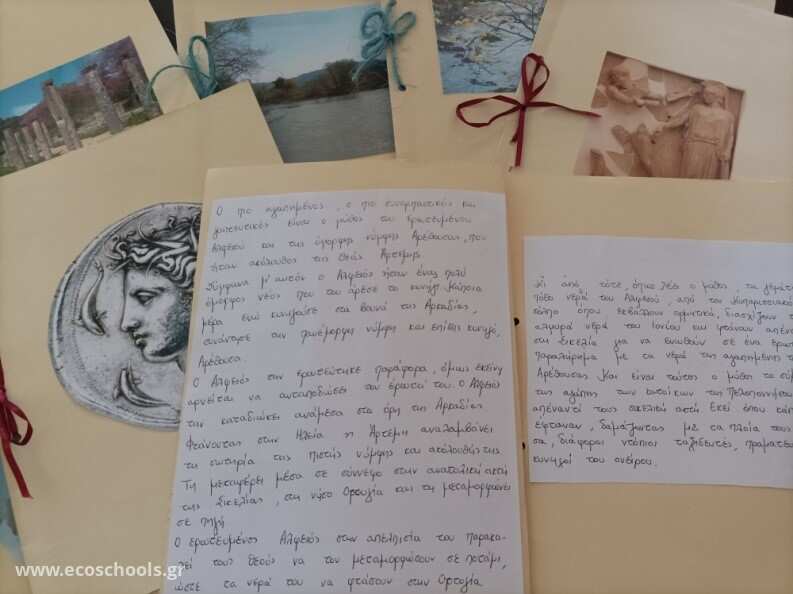 Ο πιο αγαπημένος, ο πιο συναρπαστικός και
γοητευτικός είναι ο μύθος του ερωτευμένου
Αλφειού και της όμορφης νύμφης Αρέθουσας, που
ήταν ακόλουθος της θεάς Άρτεμης
Σύμφωνα μ' αυτόν ο Αλφειός ήταν ένας πολύ
όμορφος νέος που του άρεσε το κυνήγι. Κάποια
μέρα ενώ κυνηγούσε στα βουνά της Αρκαδίας,
συνάντησε την πανέμορφη νύμφη και επίσης κυνηγό,
Αρέθουσα.
Ο Αλφειός την ερωτεύτηκε παράφορα, όμως εκείνη
αρνείται να ανταποδώσει τον έρωτά του. Ο Αλφειός
την καταδιώκει ανάμεσα στα όρη της Αρκαδίας
Φτάνοντας στην Ηλεία η Άρτεμη αναλαμβάνει
τη σωτηρία της πιστής νύμφης και ακόλουθής της
Τη μεταφέρει μέσα σε σύννεφο στην ανατολική ακτή
της Σικελίας, στη νήσο Ορτυγία και τη μεταμορφώνει
σε πηγή
Ο ερωτευμένος Αλφειός στην απελπισία του παρακα-
λεί τους θεούς να τον μεταμορφώσουν σε ποτάμι,
ώστε τα νερά του να φτάσουν στην Ορτυγία
Κι από τότε, όπως λέει ο μύθος, τα γεμάτα
πόθο νερά του Αλφειού, από τον Κυπαρισσιακό
κόλπο όπου εκβάλλουν ορμητικά, διασχίζουν τ
αλμυρά νερά του Ιονίου και φτάνουν απένα
στη Σικελία για να ενωθούν σε ένα ερωτ
παραλήρημα με τα νερά της αγαπημένης τ
Αρέθουσας. Και είναι τούτος ο μύθος το σύμ
της αγάπης των κατοίκων της Πελοποννήσου
απέναντί τους σικελική ακτή. Εκεί όπου κάπ
έφταναν, δαμάζοντας με τα πλοία τους
σα, διάφοροι ντόπιοι ταξιδευτές, πραματευ
κυνηγοί του ονείρου.
www.ecoschools.gr